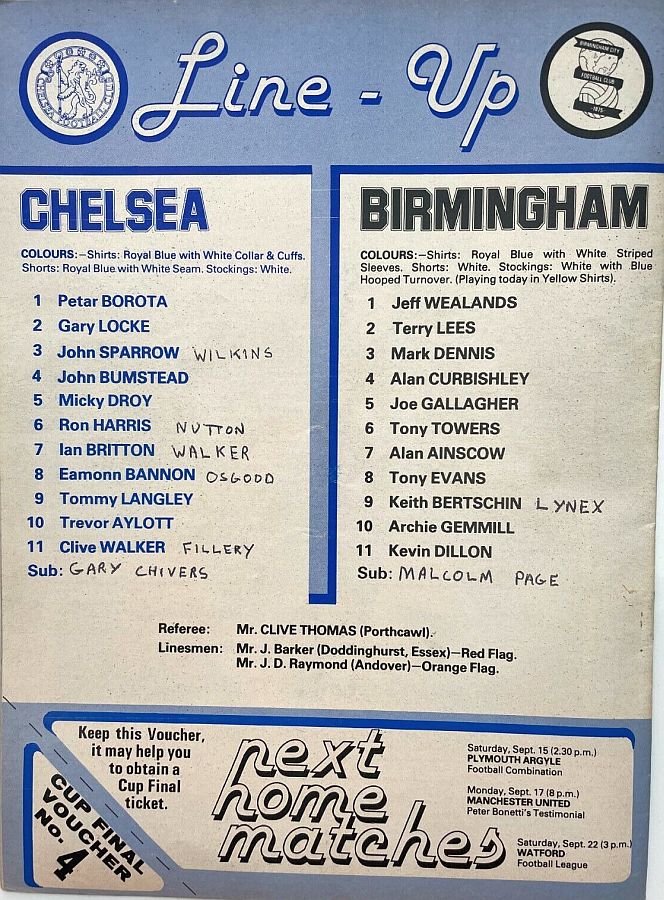 CHELSEA FOOTBALL CLUB
Line - Up
BIRMINGHAM CITY
FOOTBALL CLUB
-1875-
CHELSEA
COLOURS:—Shirts: Royal Blue with White Collar & Cuffs.
Shorts: Royal Blue with White Seam. Stockings: White.
1 Petar BOROTA
2 Gary LOCKE
3 John SPARROW WILKINS
4 John BUMSTEAD
5 Micky DROY
6 Ron HARRIS NUTTON
7 Ian BRITTON WALKER
8 Eamonn BANNON OSGOOD
9 Tommy LANGLEY
10 Trevor AYLOTT
11 Clive WALKER FILLERY
Sub: GARY CHIVERS
BIRMINGHAM
COLOURS:—Shirts: Royal Blue with White Striped
Sleeves. Shorts: White. Stockings: White with Blue
Hooped Turnover. (Playing today in Yellow Shirts).
1 Jeff WEALANDS
2 Terry LEES
3 Mark DENNIS
4 Alan CURBISHLEY
5 Joe GALLAGHER
6 Tony TOWERS
7 Alan AINSCOW
8 Tony EVANS
9 Keith BERTSCHIN LYNEX
10 Archie GEMMILL
11 Kevin DILLON
Sub: MALCOLM PAGE
Referee: Mr. CLIVE THOMAS (Porthcawl).
Linesmen: Mr. J. Barker (Doddinghurst, Essex)—Red Flag.
Mr. J. D. Raymond (Andover)—Orange Flag.
Keep this Voucher,
it may help you
to obtain a
Cup Final
ticket.
CUP FINAL
VOUCHER
No. 4
next
home
matches
Saturday, Sept. 15 (2.30 p.m.)
PLYMOUTH ARGYLE
Football Combination
Monday, Sept. 17 (8 p.m.)
MANCHESTER UNITED
Peter Bonetti's Testimonial
Saturday, Sept. 22 (3 p.m.)
WATFORD
Football League